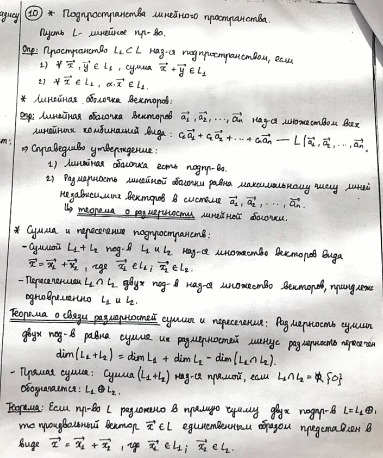 ⑩ * Подпространства линейного пространства.
Пусть L - линейное пр-во.
Опр: Пространство L₁⊂L наз-ся подпространством, если
1) ∀ x⃗, y⃗ ∈ L₁, сумма x⃗ + y⃗ ∈ L₁
2) ∀ x⃗ ∈ L₁, α·x⃗ ∈ L₁.
* Линейная оболочка векторов:
Опр: Линейная оболочка векторов a⃗₁, a⃗₂, ..., a⃗ₙ наз-ся множеством всех
линейных комбинаций вида: c₁a⃗₁ + c₂a⃗₂ + ... + cₙa⃗ₙ — L(a⃗₁, a⃗₂, ..., a⃗ₙ
⇒ Справедливо утверждение:
1) Линейная оболочка есть подпр-во.
2) Размерность линейной оболочки равна максимальному числу линей
независимых векторов в системе a⃗₁, a⃗₂, ..., a⃗ₙ.
теорема о размерности линейной оболочки.
* Сумма и пересечение подпространств:
- Суммой L₁ + L₂ под-в L₁ и L₂ наз-ся множество векторов вида
x⃗ = x⃗₁ + x⃗₂, где x⃗₁ ∈ L₁; x⃗₂ ∈ L₂.
- Пересечением L₁ ∩ L₂ двух под-в наз-ся множество векторов, принадлеж
одновременно L₁ и L₂.
Теорема о связи размерностей суммы и пересечения: Размерность суммы
двух под-в равна сумме их размерностей минус размерность пересечен
dim(L₁+L₂) = dim L₁ + dim L₂ - dim(L₁∩L₂).
- Прямая сумма: Сумма (L₁+L₂) наз-ся прямой, если L₁∩L₂ = {0}
Обозначается: L₁⊕L₂.
Теорема: Если пр-во L разложено в прямую сумму двух подпр-в L=L₁⊕
то произвольный вектор x⃗ ∈ L единственным образом представлен в
виде x⃗ = x⃗₁ + x⃗₂, где x⃗₁ ∈ L₁; x⃗₂ ∈ L₂.